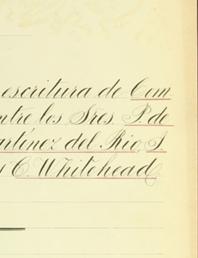 escritura de Com
ntre los Sres P. de
artínez del Rio, J.
y C. Whitehead